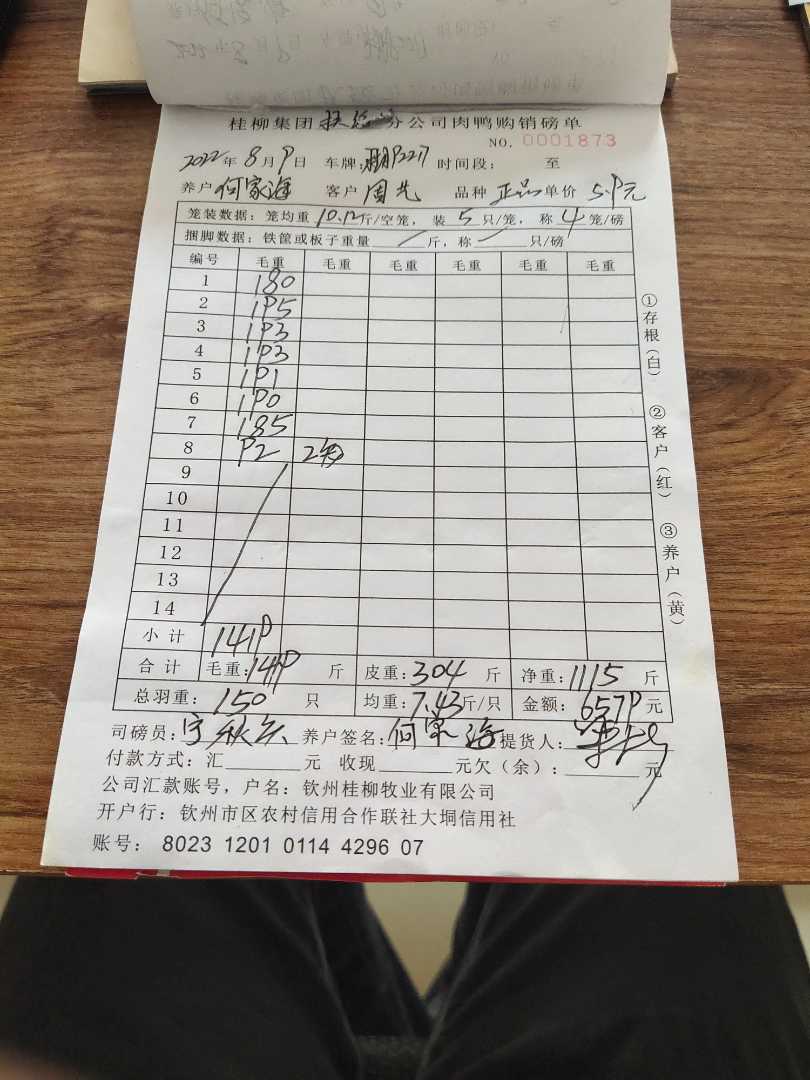 桂柳集团扶绥分公司肉鸭购销磅单
NO. 0001873
2022年8月9日 车牌: 时间段: 至
养户 何家海 客户 周先 品种 正品 单价 5.9元
笼装数据: 笼均重10.12斤/空笼, 装5只/笼, 称4笼/磅
捆脚数据: 铁筐或板子重量 / 斤, 称 / 只/磅
编号 毛重 毛重 毛重 毛重 毛重 毛重
1 180
2 195
3 193
4 193
5 191
6 190
7 185
8 92 2笼
9
10
11
12
13
14
小计 1419
合计 毛重:1419 斤 皮重:304 斤 净重:1115 斤
总羽重: 150 只 均重:7.43斤/只 金额: 6579元
司磅员: 养户签名: 何家海 提货人:
付款方式: 汇______元 收现______元欠(余): ______元
公司汇款账号, 户名: 钦州桂柳牧业有限公司
开户行: 钦州市区农村信用合作联社大垌信用社
账号: 8023 1201 0114 4296 07
①存根(白)
②客户(红)
③养户(黄)